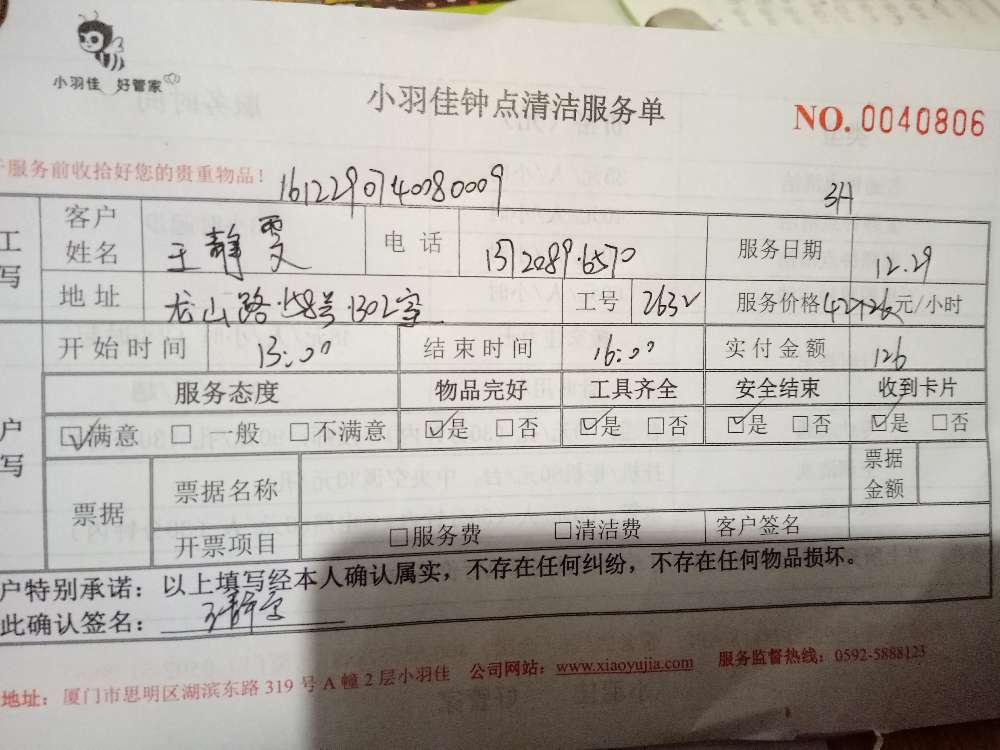 小羽佳 好管家
小羽佳钟点清洁服务单
NO. 0040806
服务前收拾好您的贵重物品！
161229074080009 3H
工写
客户姓名 王静雯 电话 服务日期 12.29
地址 龙山路158号1302室 工号 2632 服务价格 元/小时
开始时间 13:00 结束时间 16:00 实付金额 126
户写
服务态度 物品完好 工具齐全 安全结束 收到卡片
☑满意 □一般 □不满意 ☑是 □否 ☑是 □否 ☑是 □否 ☑是 □否
票据 票据名称 票据金额
开票项目 □服务费 □清洁费 客户签名
户特别承诺：以上填写经本人确认属实，不存在任何纠纷，不存在任何物品损坏。
此确认签名：
地址：厦门市思明区湖滨东路 319 号 A 幢 2 层小羽佳 公司网站：www.xiaoyujia.com 服务监督热线：0592-5888123